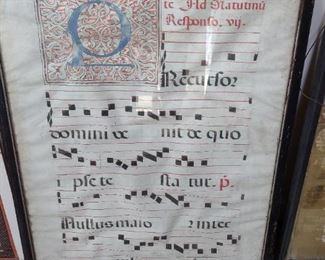 te Ad Matutinū
Responso. vij.
P
Recursor
domini ve nit de quo
i pse te sta tur. p̄.
Nullus maio r inter